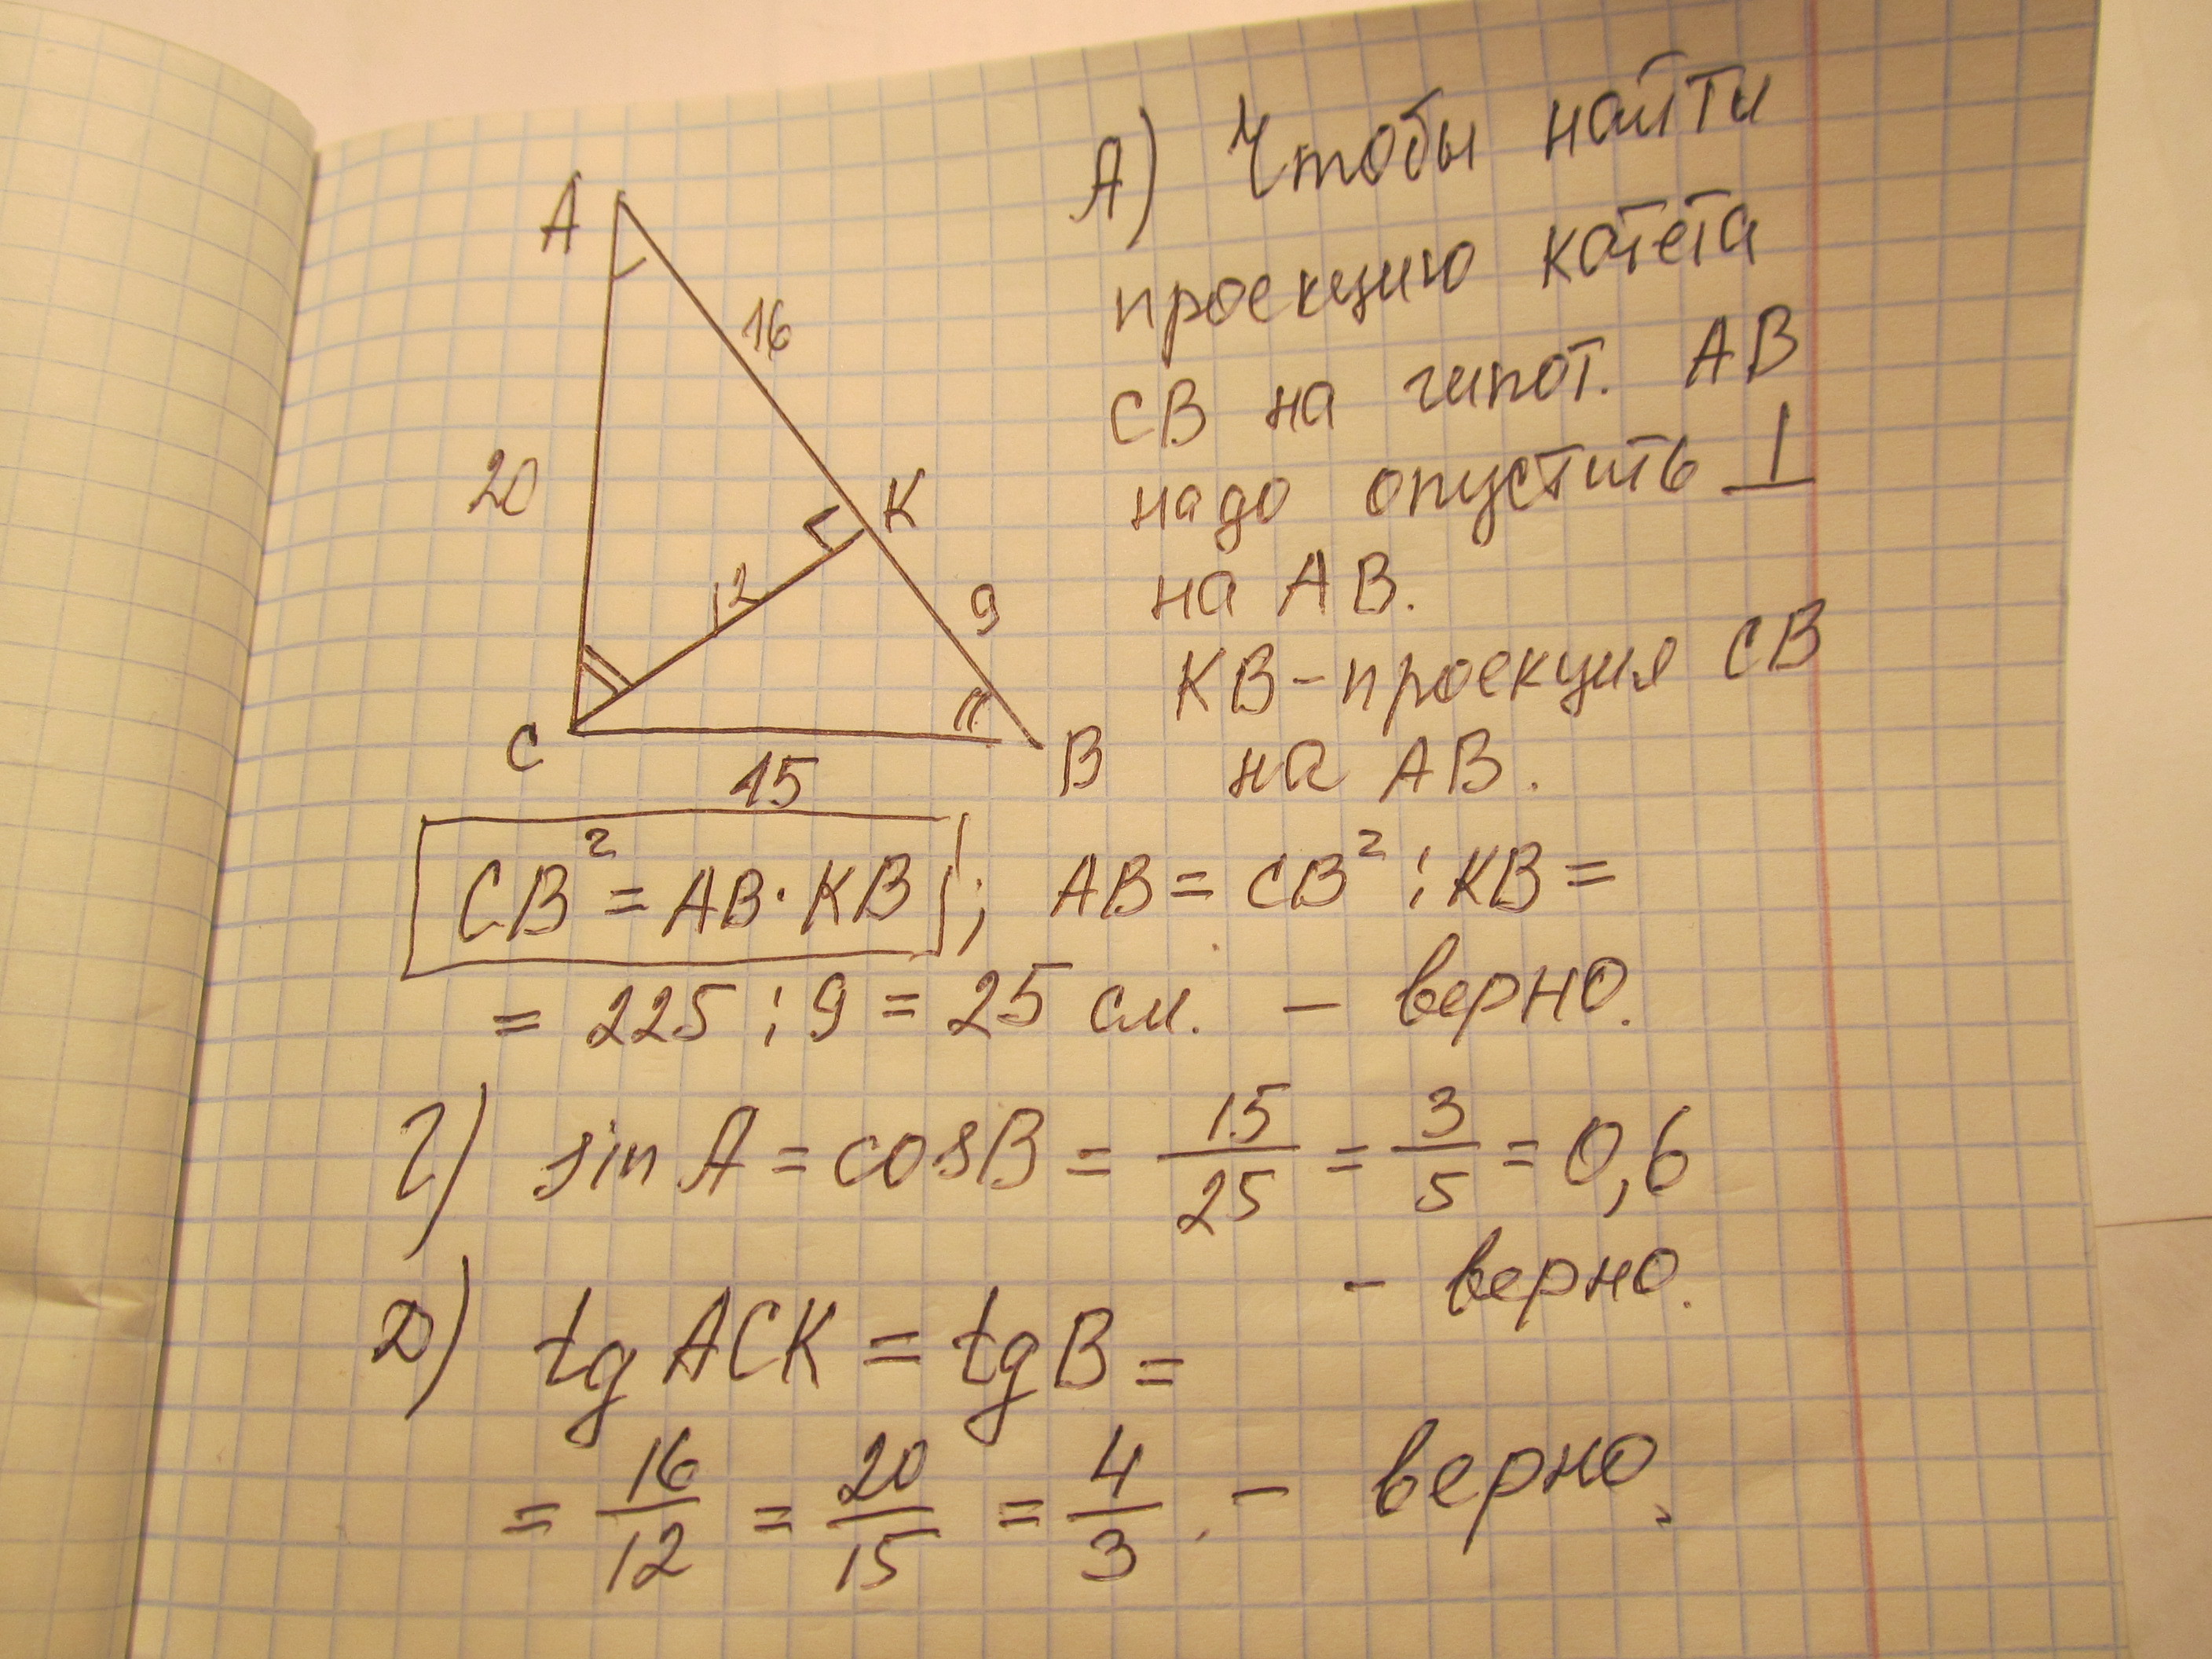 А) Чтобы найти
проекцию катета
CB на гипот. AB
надо опустить ⊥
на AB.
KB - проекция CB
на AB.
A
16
20
K
12
9
C
15
B
CB² = AB · KB ; AB = CB² : KB =
= 225 : 9 = 25 см. - верно.
Г) sin A = cos B = 15/25 = 3/5 = 0,6
- верно.
Д) tg ACK = tg B =
= 16/12 = 20/15 = 4/3 . - верно.